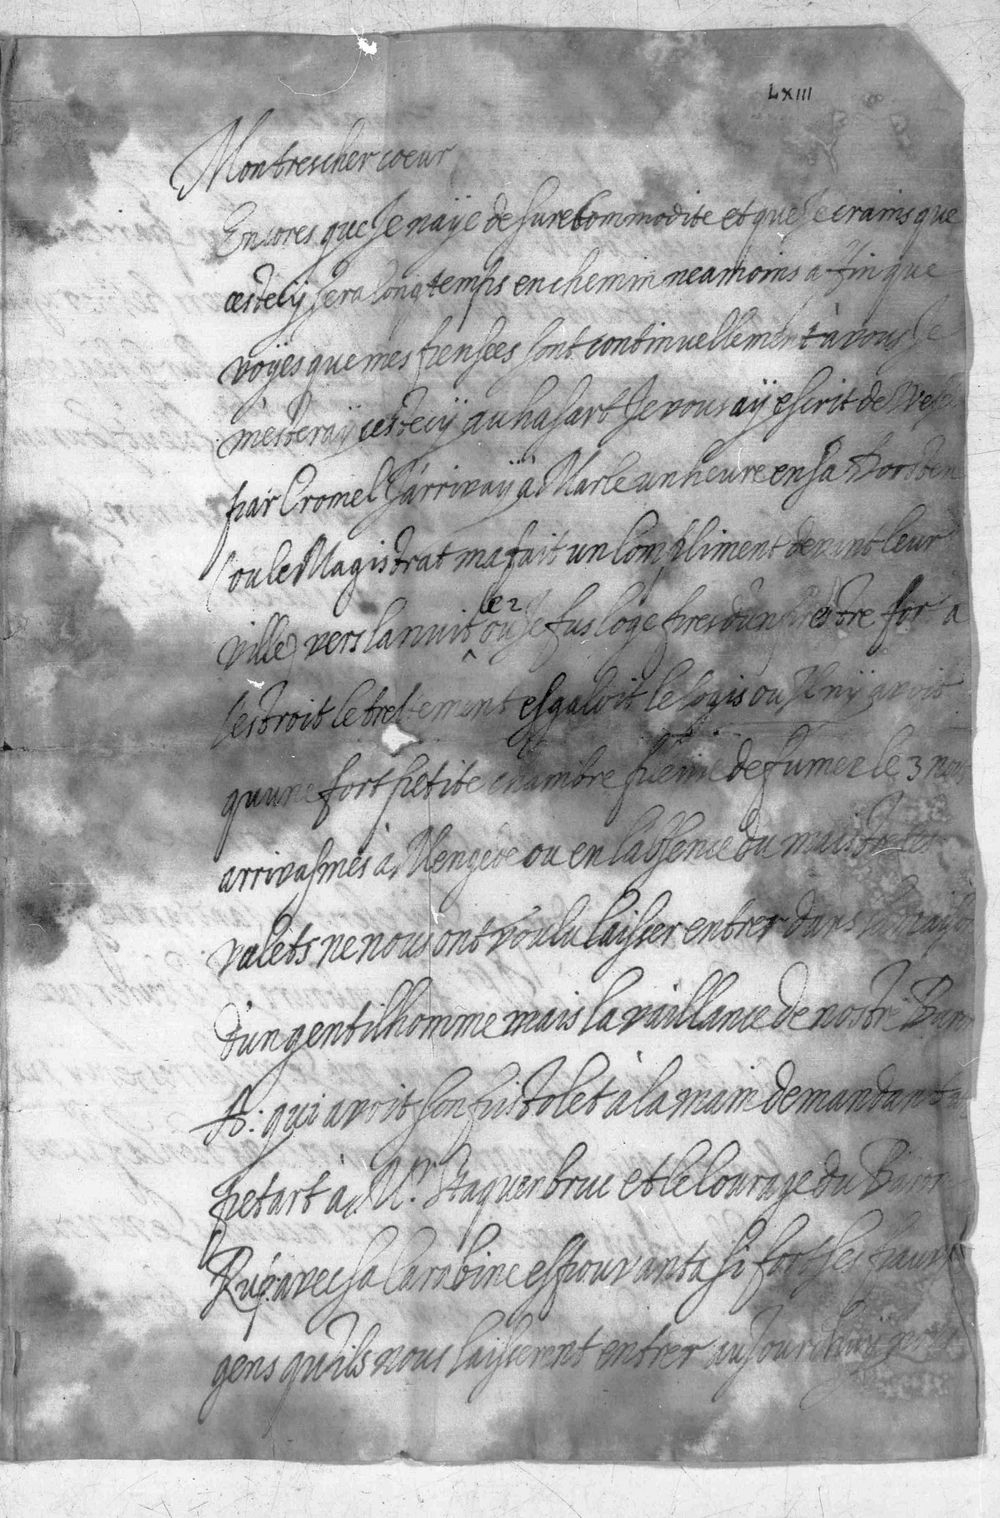 LXIII
Mon trescher coeur
Encores que Je naÿe de sure Commodite et que Je crains que
cestecÿ sera long temps en chemin neamoins a fin que
voÿes que mes pensees sont continuellement à vous Je
mesteraÿ cestecÿ au hasart Je vous aÿ escrit de
par Cromel J'arrivaÿ à Marle un heure en sa
(ou le Magistrat ma fait un Compliment devant leur
ville) vers la nuit le 2 ou Je fus loge pres d'un prestre fort a
lestroit le tretement esgaloit le logis ou Il nÿ avoit
qu'une fort petite chambre pleine de fumee le 3 nous
arrivasmes à Mengede ou en l'absence du maistre les
valets ne nous ont voulu laisser entrer dans la maison
d'un gentilhomme mais la vaillance de nostre Baron
A: qui avoit son pistolet à la main demandant
petart à Mr. Staquenbruc et le Courage du Baron
avec sa Carabine espouvanta si fort ses pauvres
gens qu'ils nous laisserent entrer aujourdhuÿ